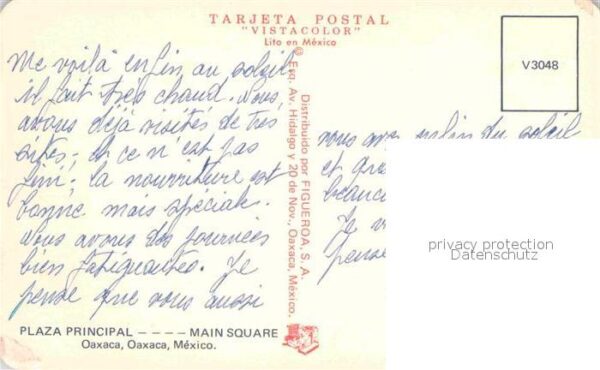 TARJETA POSTAL
"VISTACOLOR"
Lito en México
V3048
Me voilà enfin au soleil
il fait très chaud. Nous,
avons déjà visités de très
sites; et ce n'est pas
fini; la nourriture est
bonne mais spéciale.
Nous avons des journées
bien fatiguantes. Je
pense que vous aussi
vous avez du soleil
et
Je
pense
© Esq. Av. Hidalgo y 20 de Nov., Oaxaca, México.
Distribuido por FIGUEROA, S. A.
privacy protection
Datenschutz
PLAZA PRINCIPAL – – – – MAIN SQUARE
Oaxaca, Oaxaca, México.